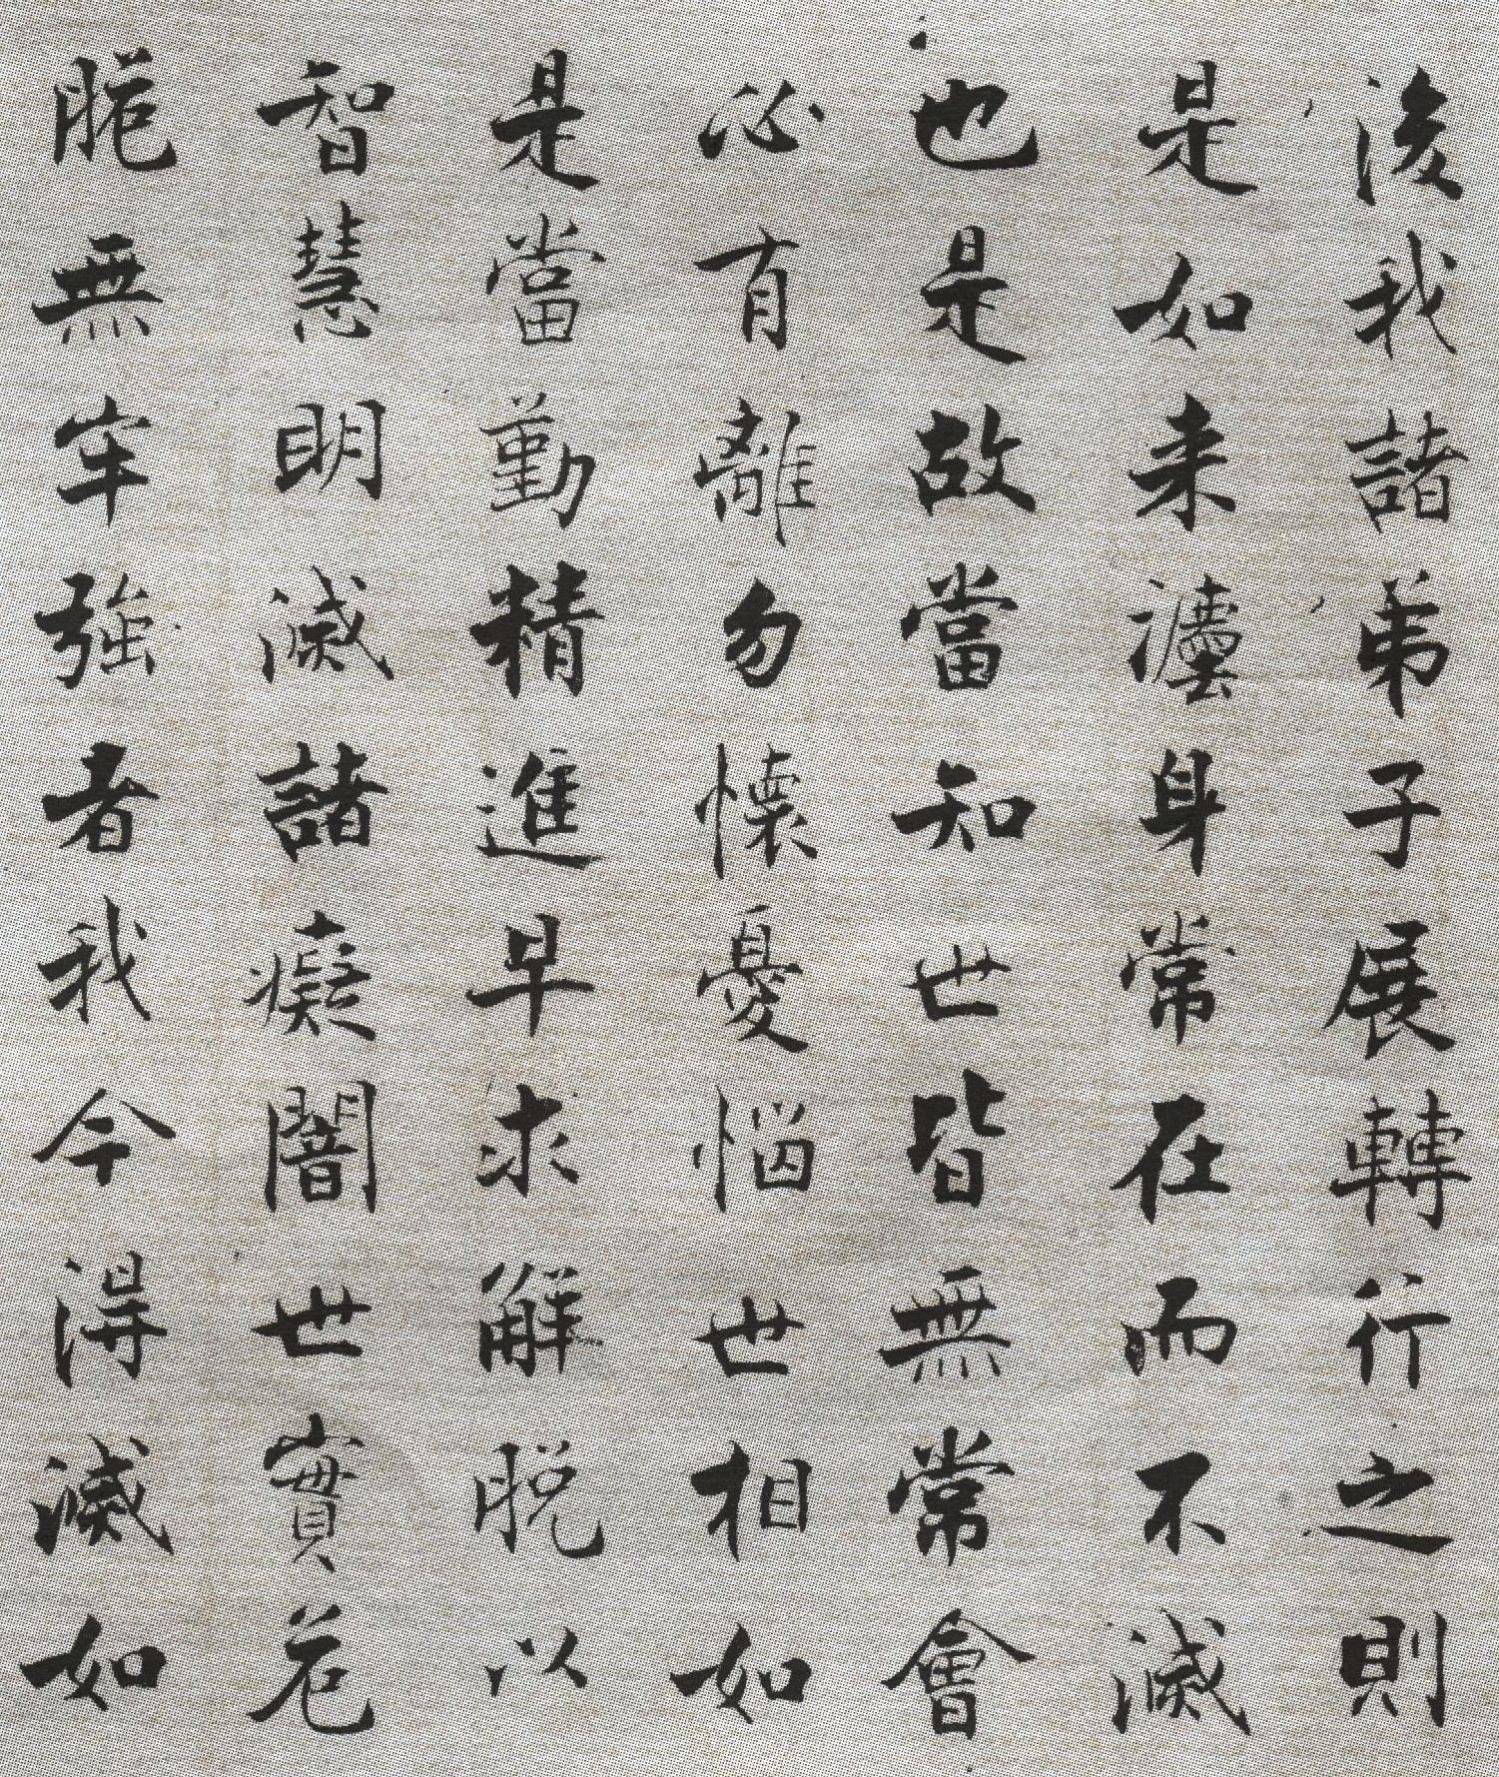 後我諸弟子展轉行之則
是如来灋身常在而不滅
也是故當知世皆無常會
必有離勿懷憂惱世相如
是當勤精進早求解脫以
智慧明滅諸癡闇世實危
脆無牢強者我今得滅如